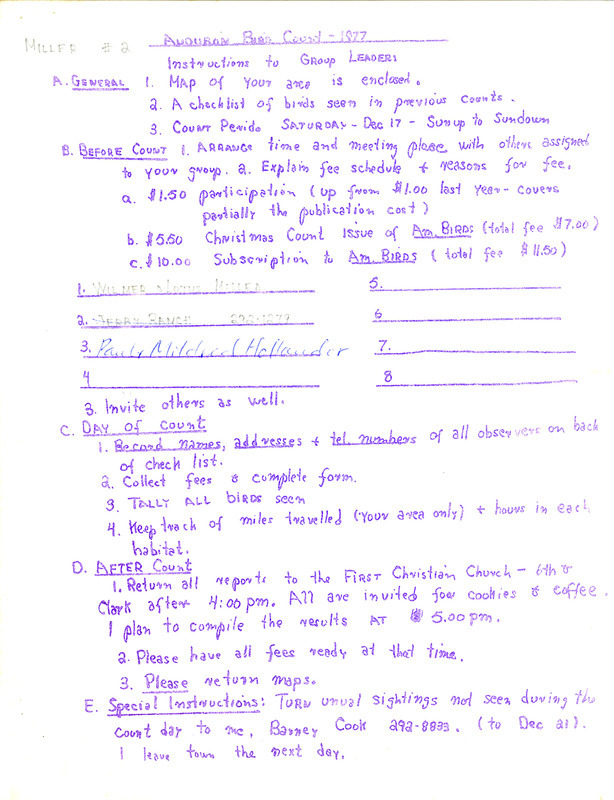 MILLER #2
AUDUBON BIRD COUNT - 1977
Instructions to Group Leaders
A. GENERAL 1. MAP of your area is enclosed.
2. A checklist of birds seen in previous counts.
3. Count Perido SATURDAY - Dec 17 - Sunup to Sundown
B. BEFORE COUNT 1. ARRANGE time and meeting place with others assigned
to your group. 2. Explain fee schedule + reasons for fee.
a. $1.50 participation (up from $1.00 last year - covers
partially the publication cost)
b. $5.50 Christmas Count Issue of Am. BIRDS (total fee $7.00)
c. $10.00 Subscription to Am. BIRDS (total fee $11.50)
1. WILMER MILLER
5.
2. JERRY 292-1877
6
3. Paul & Mildred Hollander
7.
4
8
3. Invite others as well.
C. DAY OF COUNT
1. Record names, addresses + tel. numbers of all observers on back
of check list.
2. Collect fees & complete form.
3. TALLY ALL BIRDS seen
4. Keep track of miles travelled (your area only) + hours in each
habitat.
D. AFTER Count
1. Return all reports to the FIRST Christian Church - 6th &
Clark after 4:00 pm. All are invited for cookies & coffee.
I plan to compile the results AT 5.00 pm.
2. Please have all fees ready at that time.
3. Please return maps.
E. Special Instructions: TURN unual sightings not seen during the
count day to me, Barney Cook 292-8833. (to Dec 21).
I leave town the next day.